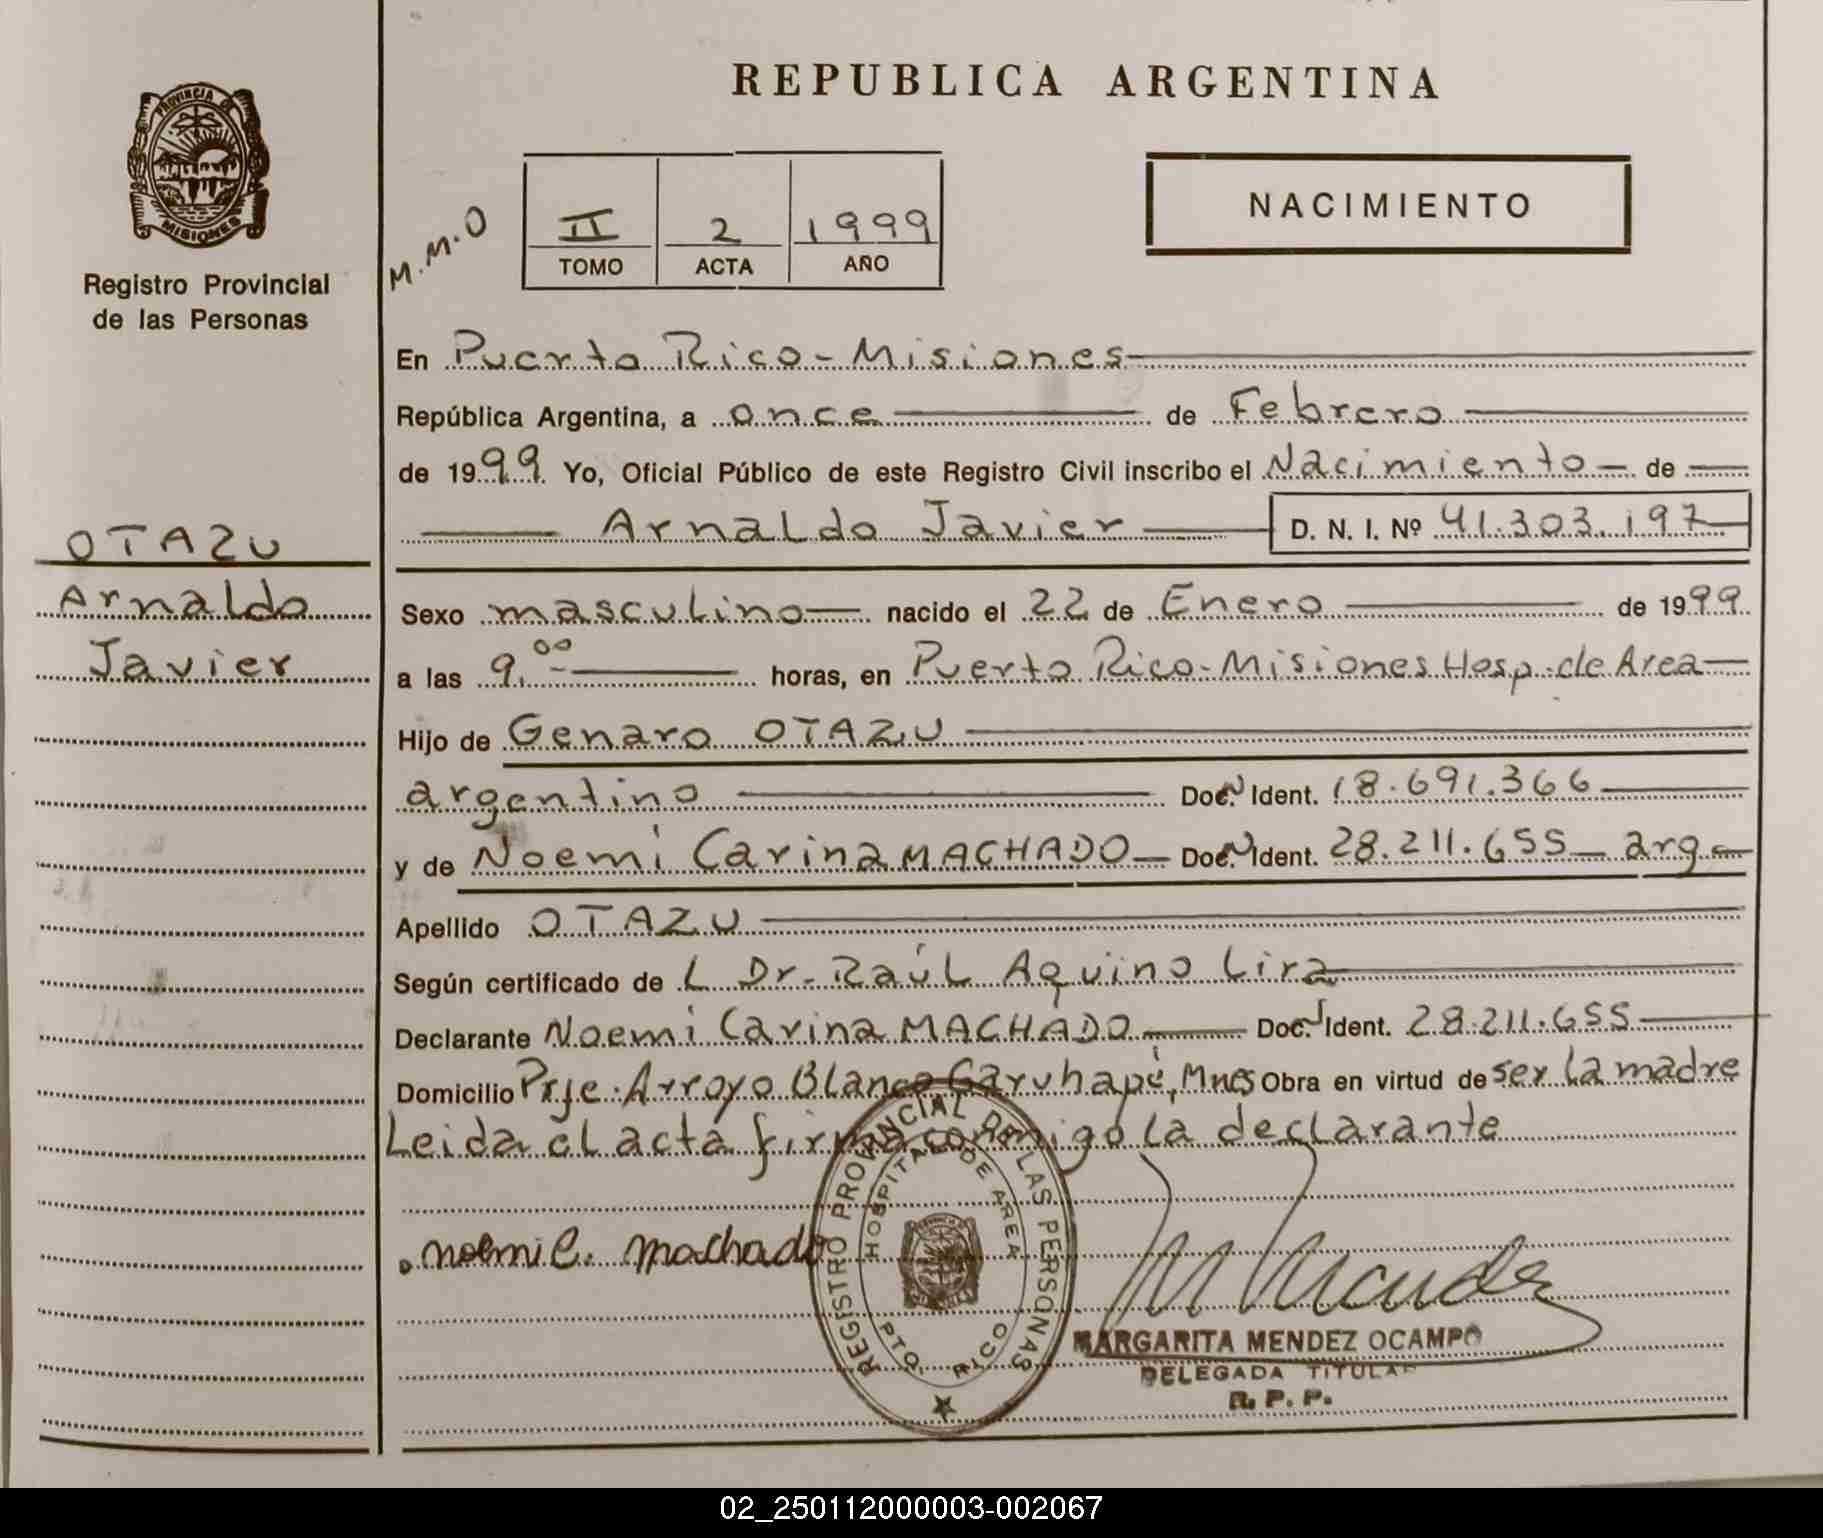 REPUBLICA ARGENTINA
PROVINCIA DE
MISIONES
Registro Provincial
de las Personas
M.M.O
II 2 1999
TOMO ACTA AÑO
NACIMIENTO
En Puerto Rico - Misiones
República Argentina, a once de Febrero
de 1999 Yo, Oficial Público de este Registro Civil inscribo el Nacimiento de
Arnaldo Javier D. N. I. Nº 41.303.197
OTAZU
Arnaldo
Javier
Sexo masculino nacido el 22 de Enero de 1999
a las 9.00 horas, en Puerto Rico - Misiones Hosp. de Area
Hijo de Genaro OTAZU
argentino Doc. Ident. 18.691.366
y de Noemi Carina MACHADO Doc. Ident. 28.211.655 arg
Apellido OTAZU
Según certificado de L Dr. Raúl Aquino Lira
Declarante Noemi Carina MACHADO Doc. Ident. 28.211.655
Domicilio Prje. Arroyo Blanco Garuhapé, Mnes Obra en virtud de ser la madre
Leida el acta firma conmigo la declarante
noemi C. machado
REGISTRO PROVINCIAL DE LAS PERSONAS
HOSPITAL DE AREA
PTO. RICO
M Mendez
MARGARITA MENDEZ OCAMPO
DELEGADA TITULAR
R. P. P.
02_250112000003-002067